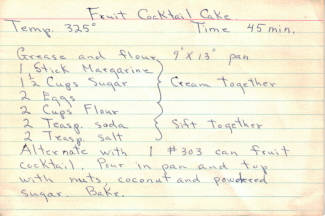 Fruit Cocktail Cake
Temp. 325° Time 45 min.
Grease and flour 9" X 13" pan
1 Stick Margarine
1 1/2 Cups Sugar Cream together
2 Eggs
2 Cups Flour
2 Teasp. soda Sift together
2 Teasp. salt
Alternate with 1 #303 can fruit
cocktail. Pour in pan and top
with nuts, coconut and powdered
sugar. Bake.